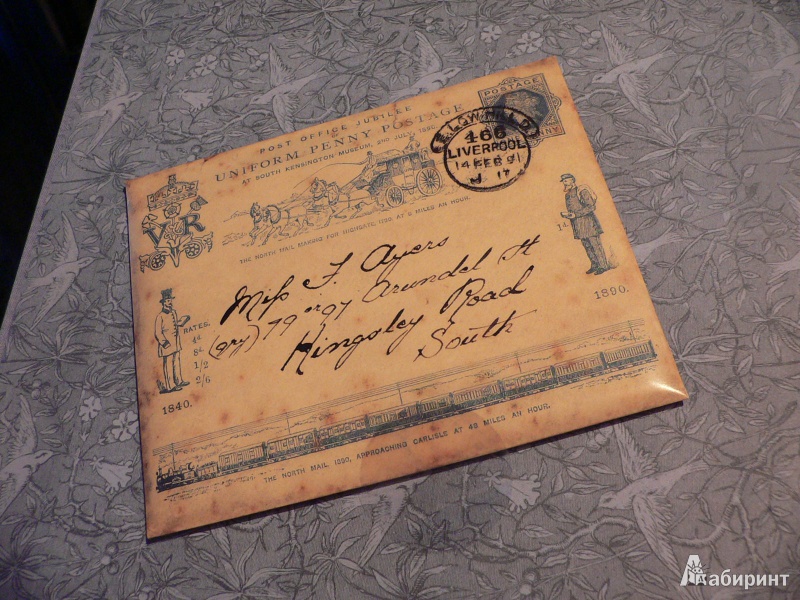 POST OFFICE JUBILEE
UNIFORM PENNY POSTAGE
AT SOUTH KENSINGTON MUSEUM, 2ND JULY 1890.
POSTAGE
PENNY
466
LIVERPOOL
14 FEB 91
17
VR
THE NORTH MAIL MAKING FOR HIGHGATE, 1790, AT 8 MILES AN HOUR.
1d
1890.
Miss F. Ayers
(qry) 79 or 97 Arundel St
Kingsley Road
South
RATES.
4d
8d
1/2
2/6
1840.
THE NORTH MAIL 1890, APPROACHING CARLISLE AT 48 MILES AN HOUR.
Лабиринт